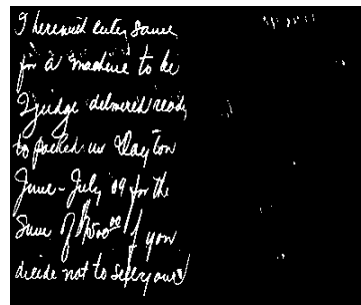 I herewith enter same
for a machine to be
I judge delivered ready
to packed in Dayton
June - July 09 for the
Sum of $1500.00 if you
decide not to sell your